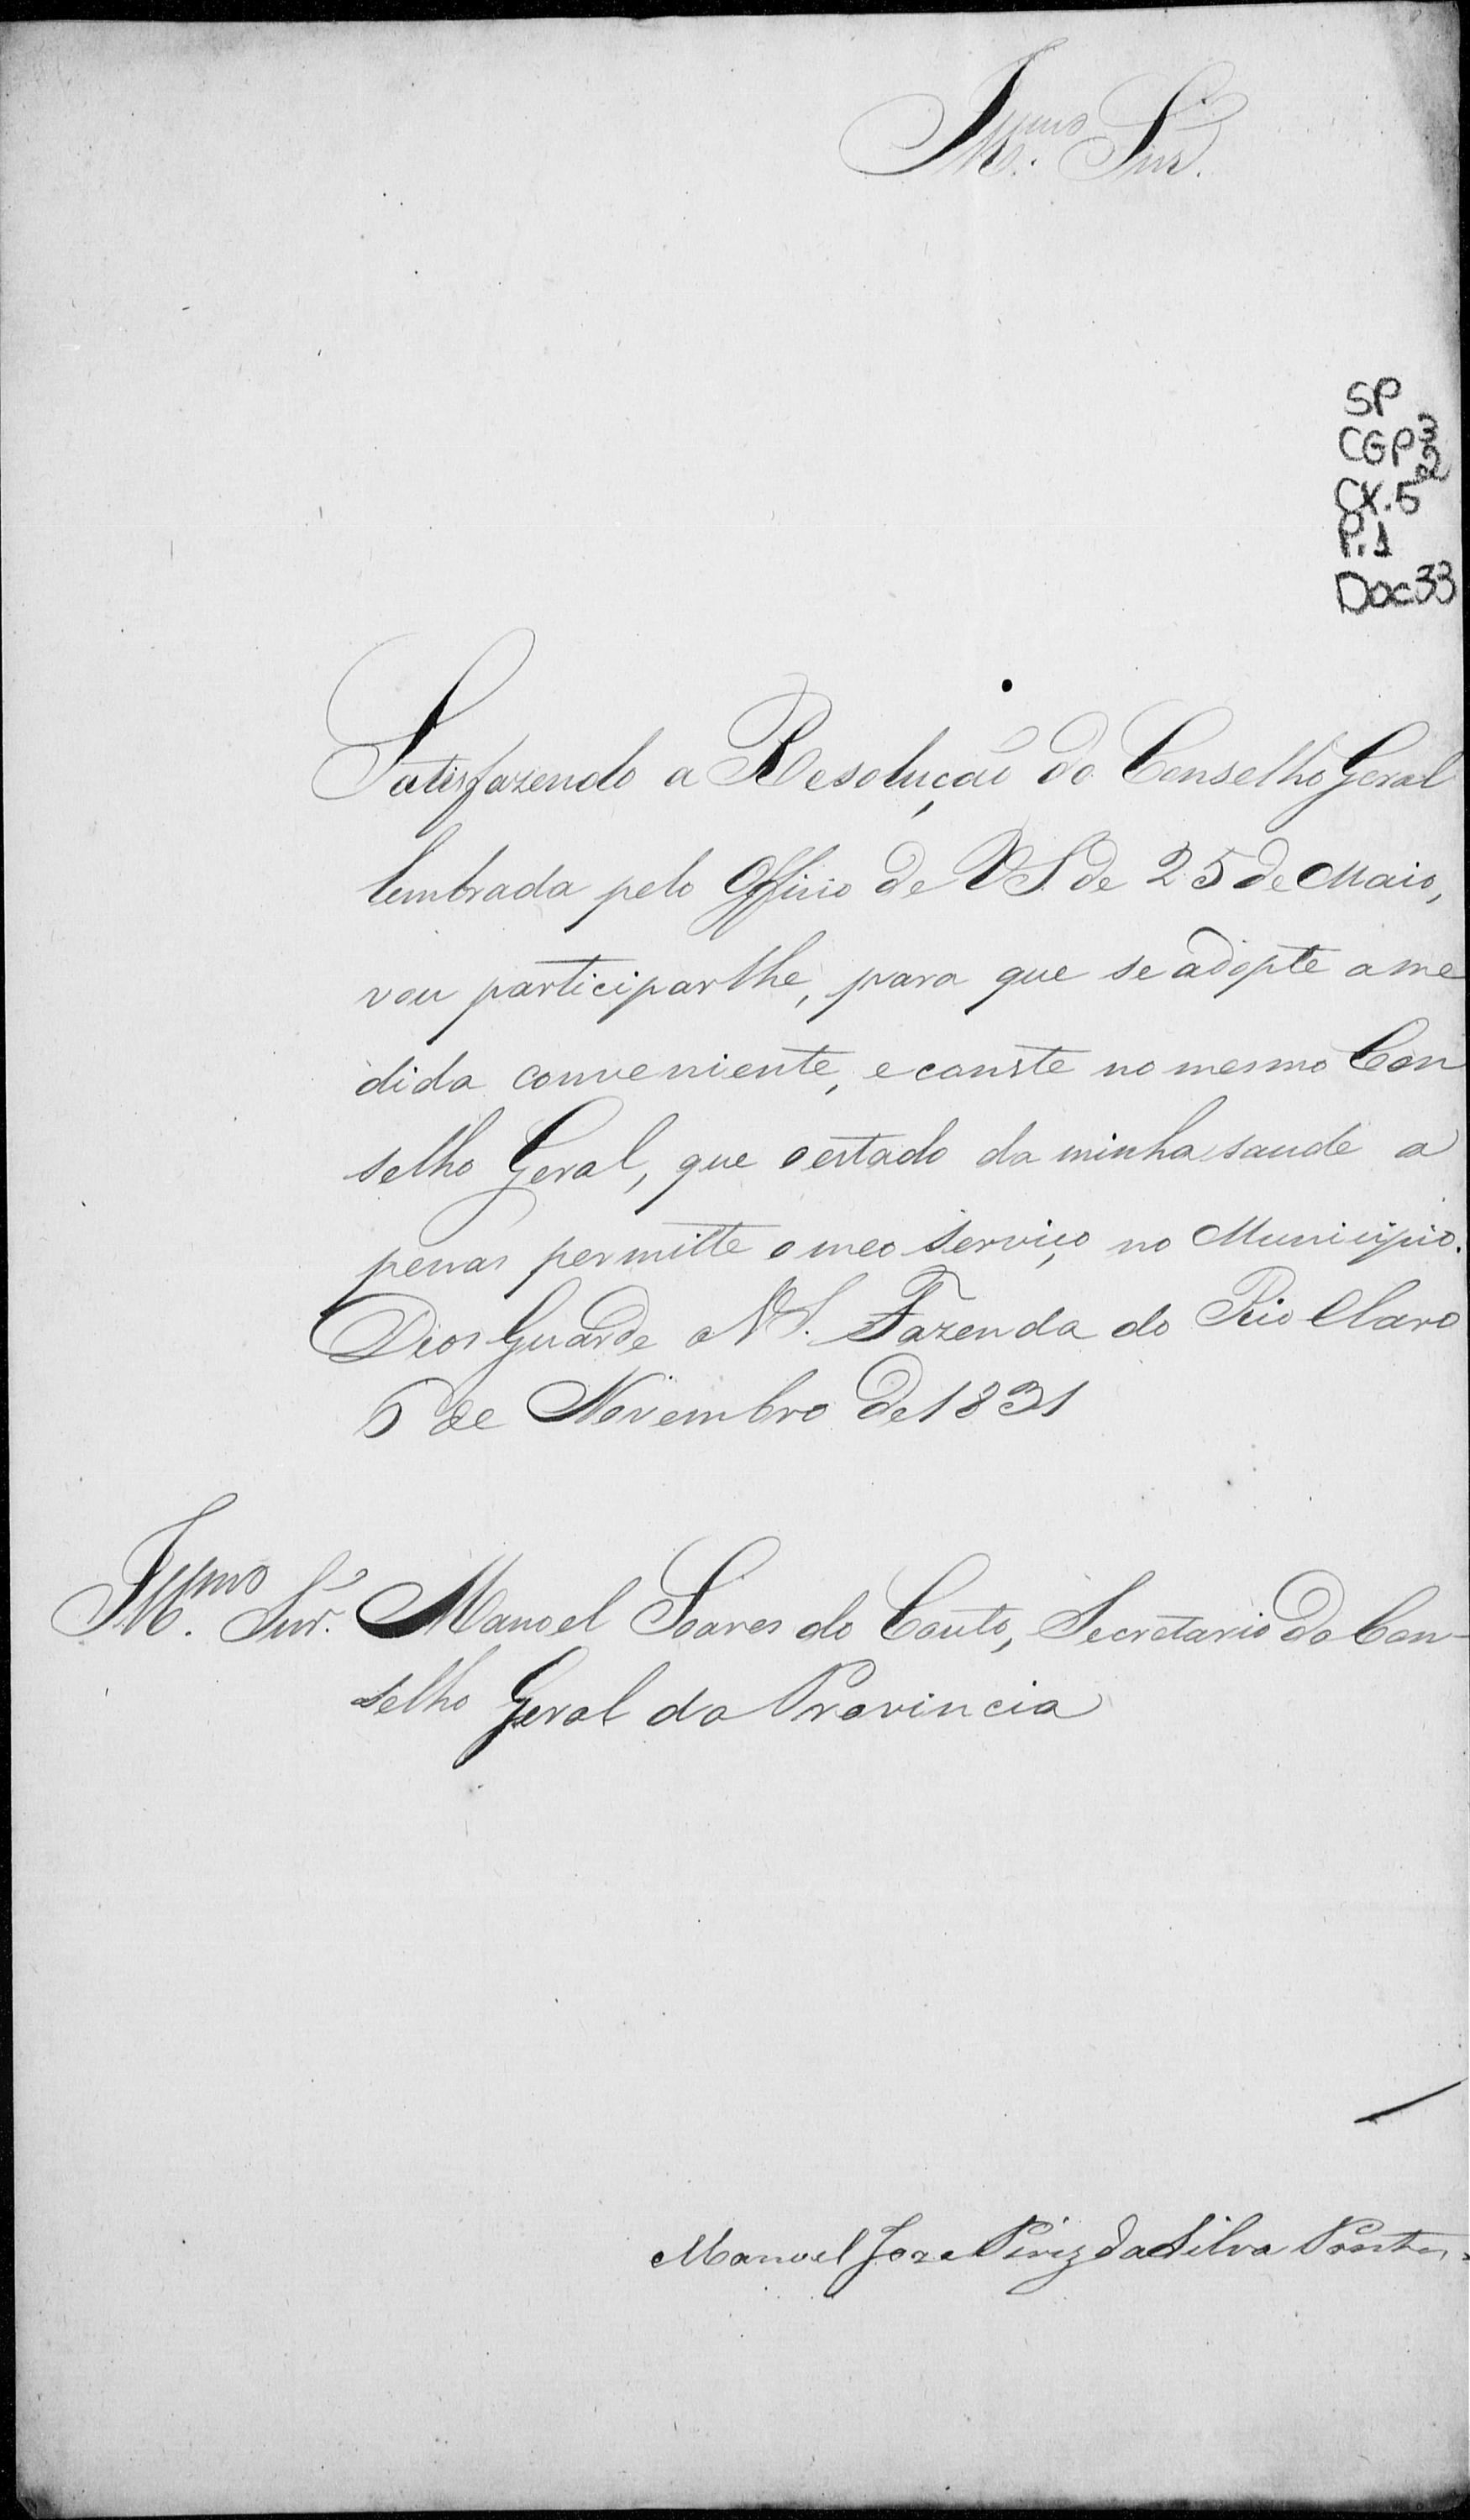 Illmo. Snr.
SP
CGP 3
CX. 5 2
P. 1
Doc 33
Satisfazendo a Resolução do Conselho Geral
lembrada pelo Officio de VS. de 25 de Maio,
vou participarlhe, para que se adopte a me
dida conveniente, e conste no mesmo Con
selho Geral, que o estado da minha saude a
penas permitte o meo serviço no Municipio.
Deos Guarde a VS. Fazenda do Rio Claro
6 de Novembro de 1831
Illmo. Snr. Manoel Soares do Couto, Secretario do Con-
selho Geral da Provincia
Manoel Joze Pirez da Silva Pontes